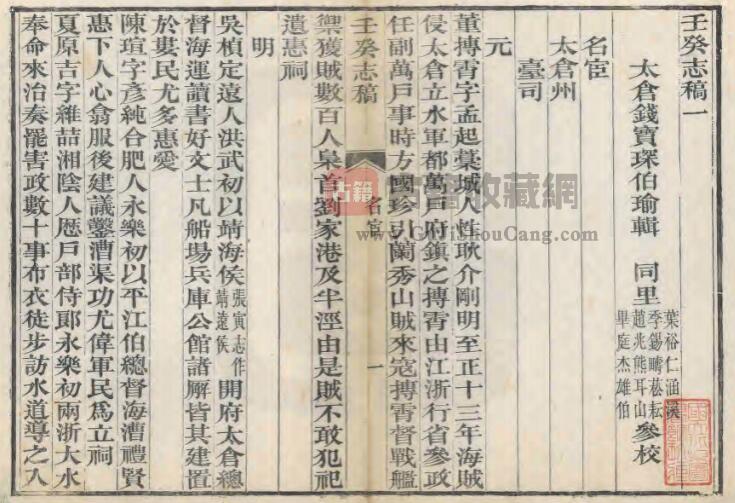 壬癸志稿一
太倉錢寶琛伯瑜輯　同里
葉裕仁涵溪
季錫疇菘耘
趙兆熊耳山
畢庭杰雄伯
參校
名宦
太倉州
臺司
元
董摶霄字孟起藁城人性耿介剛明至正十三年海賊
侵太倉立水軍都萬戶府鎮之摶霄由江浙行省參政
任副萬戶事時方國珍引蘭秀山賊來寇摶霄督戰艦
壬癸志稿
名宦
一
禦獲賊數百人梟首劉家港及半涇由是賊不敢犯祀
遺惠祠
明
吳楨定遠人洪武初以靖海侯張寅志作靖遠侯開府太倉總
督海運讀書好文士凡船場兵庫公館諸廨皆其建置
於婁民尤多惠愛
陳瑄字彥純合肥人永樂初以平江伯總督海漕禮賢
惠下人心翕服後建議鑿漕渠功尤偉軍民爲立祠
夏原吉字維喆湘陰人歷戶部侍郎永樂初兩浙大水
奉命來治奏罷害政數十事布衣徒步訪水道導之入
古籍
收藏網
GuJiShouCang.com